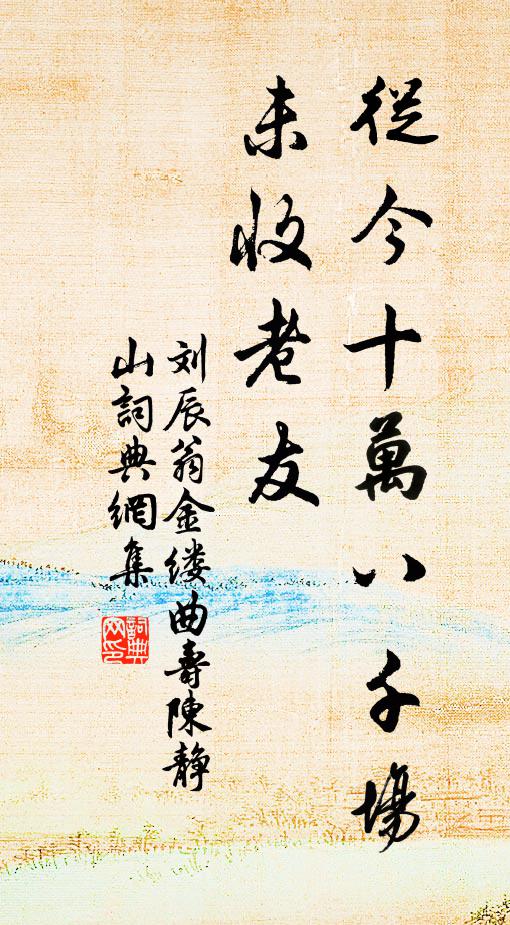 從今十萬八千場
未收老友
刘辰翁金缕曲壽陳静
山詞典網集
詞典
网印